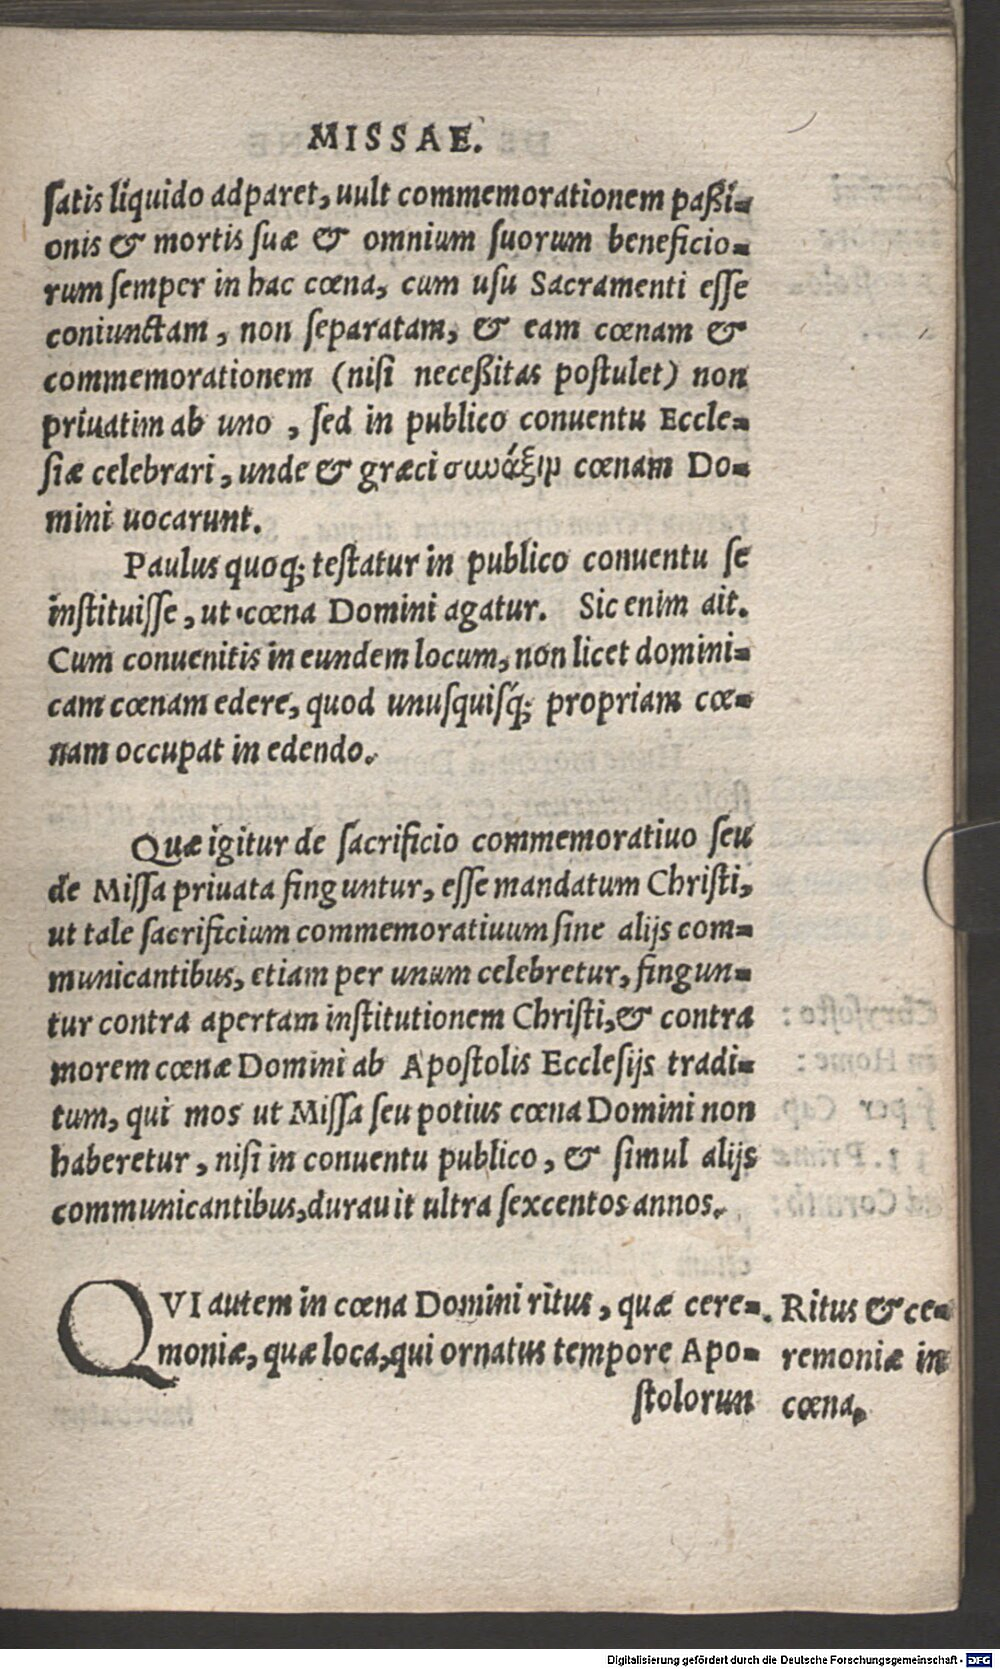 MISSAE.
satis liquido adparet, uult commemorationem paßi-
onis & mortis suæ & omnium suorum beneficio-
rum semper in hac cœna, cum usu Sacramenti esse
coniunctam, non separatam, & eam cœnam &
commemorationem (nisi neceßitas postulet) non
priuatim ab uno, sed in publico conuentu Eccle-
siæ celebrari, unde & græci σωάξιμ cœnam Do-
mini uocarunt.
Paulus quoq; testatur in publico conuentu se
instituisse, ut cœna Domini agatur. Sic enim ait.
Cum conuenitis in eundem locum, non licet domini-
cam cœnam edere, quod unusquisq́; propriam cœ-
nam occupat in edendo.
Quæ igitur de sacrificio commemoratiuo seu
de Missa priuata finguntur, esse mandatum Christi,
ut tale sacrificium commemoratiuum sine alijs com-
municantibus, etiam per unum celebretur, fingun-
tur contra apertam institutionem Christi, & contra
morem cœnæ Domini ab Apostolis Ecclesijs tradi-
tum, qui mos ut Missa seu potius cœna Domini non
haberetur, nisi in conuentu publico, & simul alijs
communicantibus, durauit ultra sexcentos annos.
QVI autem in cœna Domini ritus, quæ cere-
moniæ, quæ loca, qui ornatus tempore Apo-
stolorun
Ritus & ce-
remoniæ in
cœna.
Digitalisierung gefördert durch die Deutsche Forschungsgemeinschaft - DFG